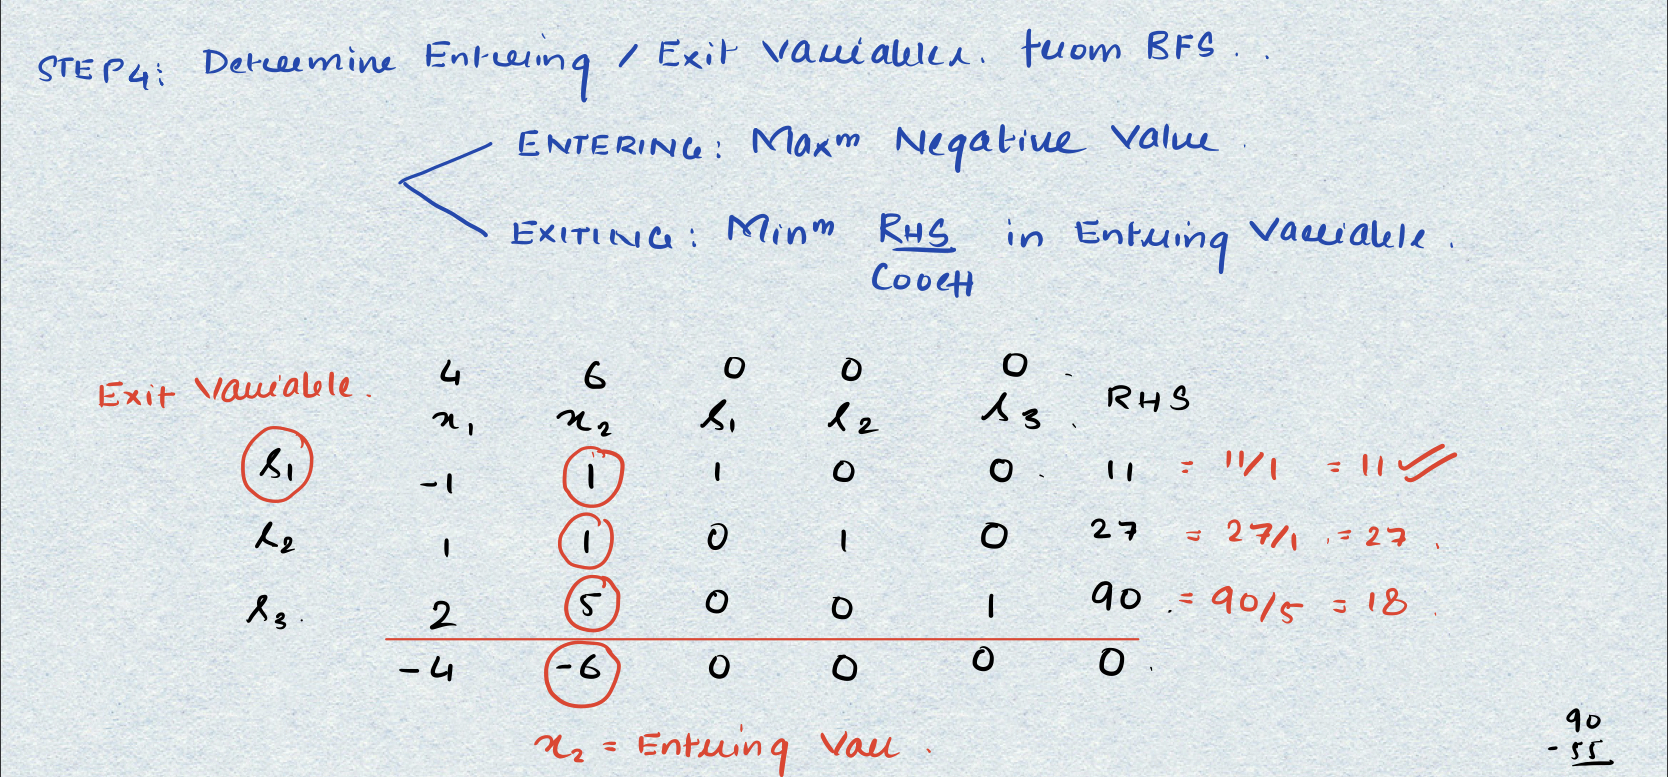 STEP4: Determine Entering / Exit Variables. from BFS..
ENTERING: Maxm Negative Value.
EXITING: Minm RHS in Entering Variable.
Cooeff
Exit Variable. 4 6 0 0 0
x1 x2 s1 s2 s3 RHS
s1 -1 1 1 0 0 11 = 11/1 = 11
s2 1 1 0 1 0 27 = 27/1 = 27.
s3. 2 5 0 0 1 90 = 90/5 = 18.
-4 -6 0 0 0 0.
x2 = Entering Var.
90
- 55